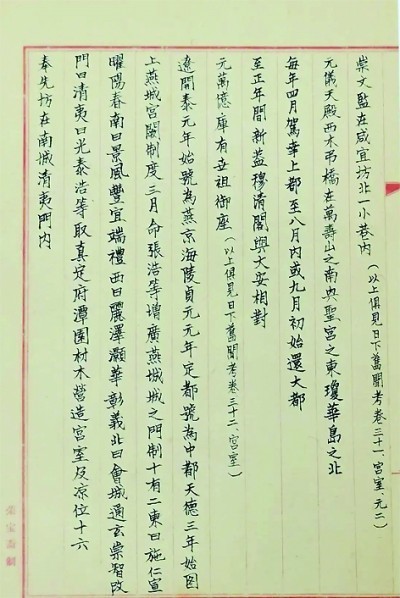 崇文監在咸宜坊北一小巷內
(以上俱見日下舊聞考卷三十一、宮室、元二)
元儀天殿西木吊橋在萬壽山之南興聖宮之東瓊華島之北
每年四月駕幸上都至八月內或九月初始還大都
至正年間新蓋穆清閣與大安相對
元萬億庫有世祖御座(以上俱見日下舊聞考卷三十二、宮室)
遼開泰元年始號為燕京海陵貞元元年定都號為中都天德三年始圖
上燕城宮闕制度三月命張浩等增廣燕城城之門制十有二東曰施仁宣
曜陽春南曰景風豐宜端禮西曰麗澤灝華彰義北曰會城通玄崇智改
門曰清夷曰光泰浩等取真定府潭園材木營造宮室及凉位十六
奉先坊在南城清夷門內